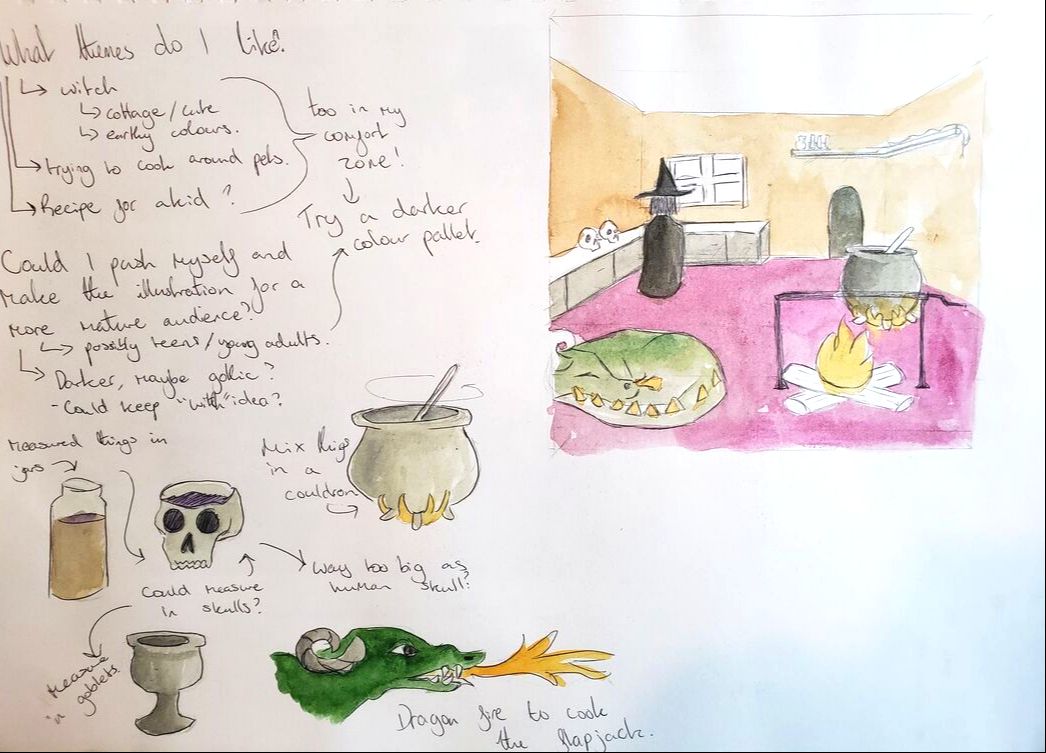 What themes do I like?
↳ witch
↳ cottage/cute
↳ earthy colours.
↳ trying to cook around pets.
↳ Recipe for a kid?
too in my
comfort
zone!
Try a darker
colour pallet.
Could I push myself and
make the illustration for a
more mature audience?
↳ possibly teens/young adults.
↳ Darker, maybe gothic?
- Could keep "with" idea?
Measured things in
jars
Mix things
in a
couldron
Could measure
in skulls?
Way too big as
human skull?
Measure
in goblets.
Dragon fire to cook
the flapjack.